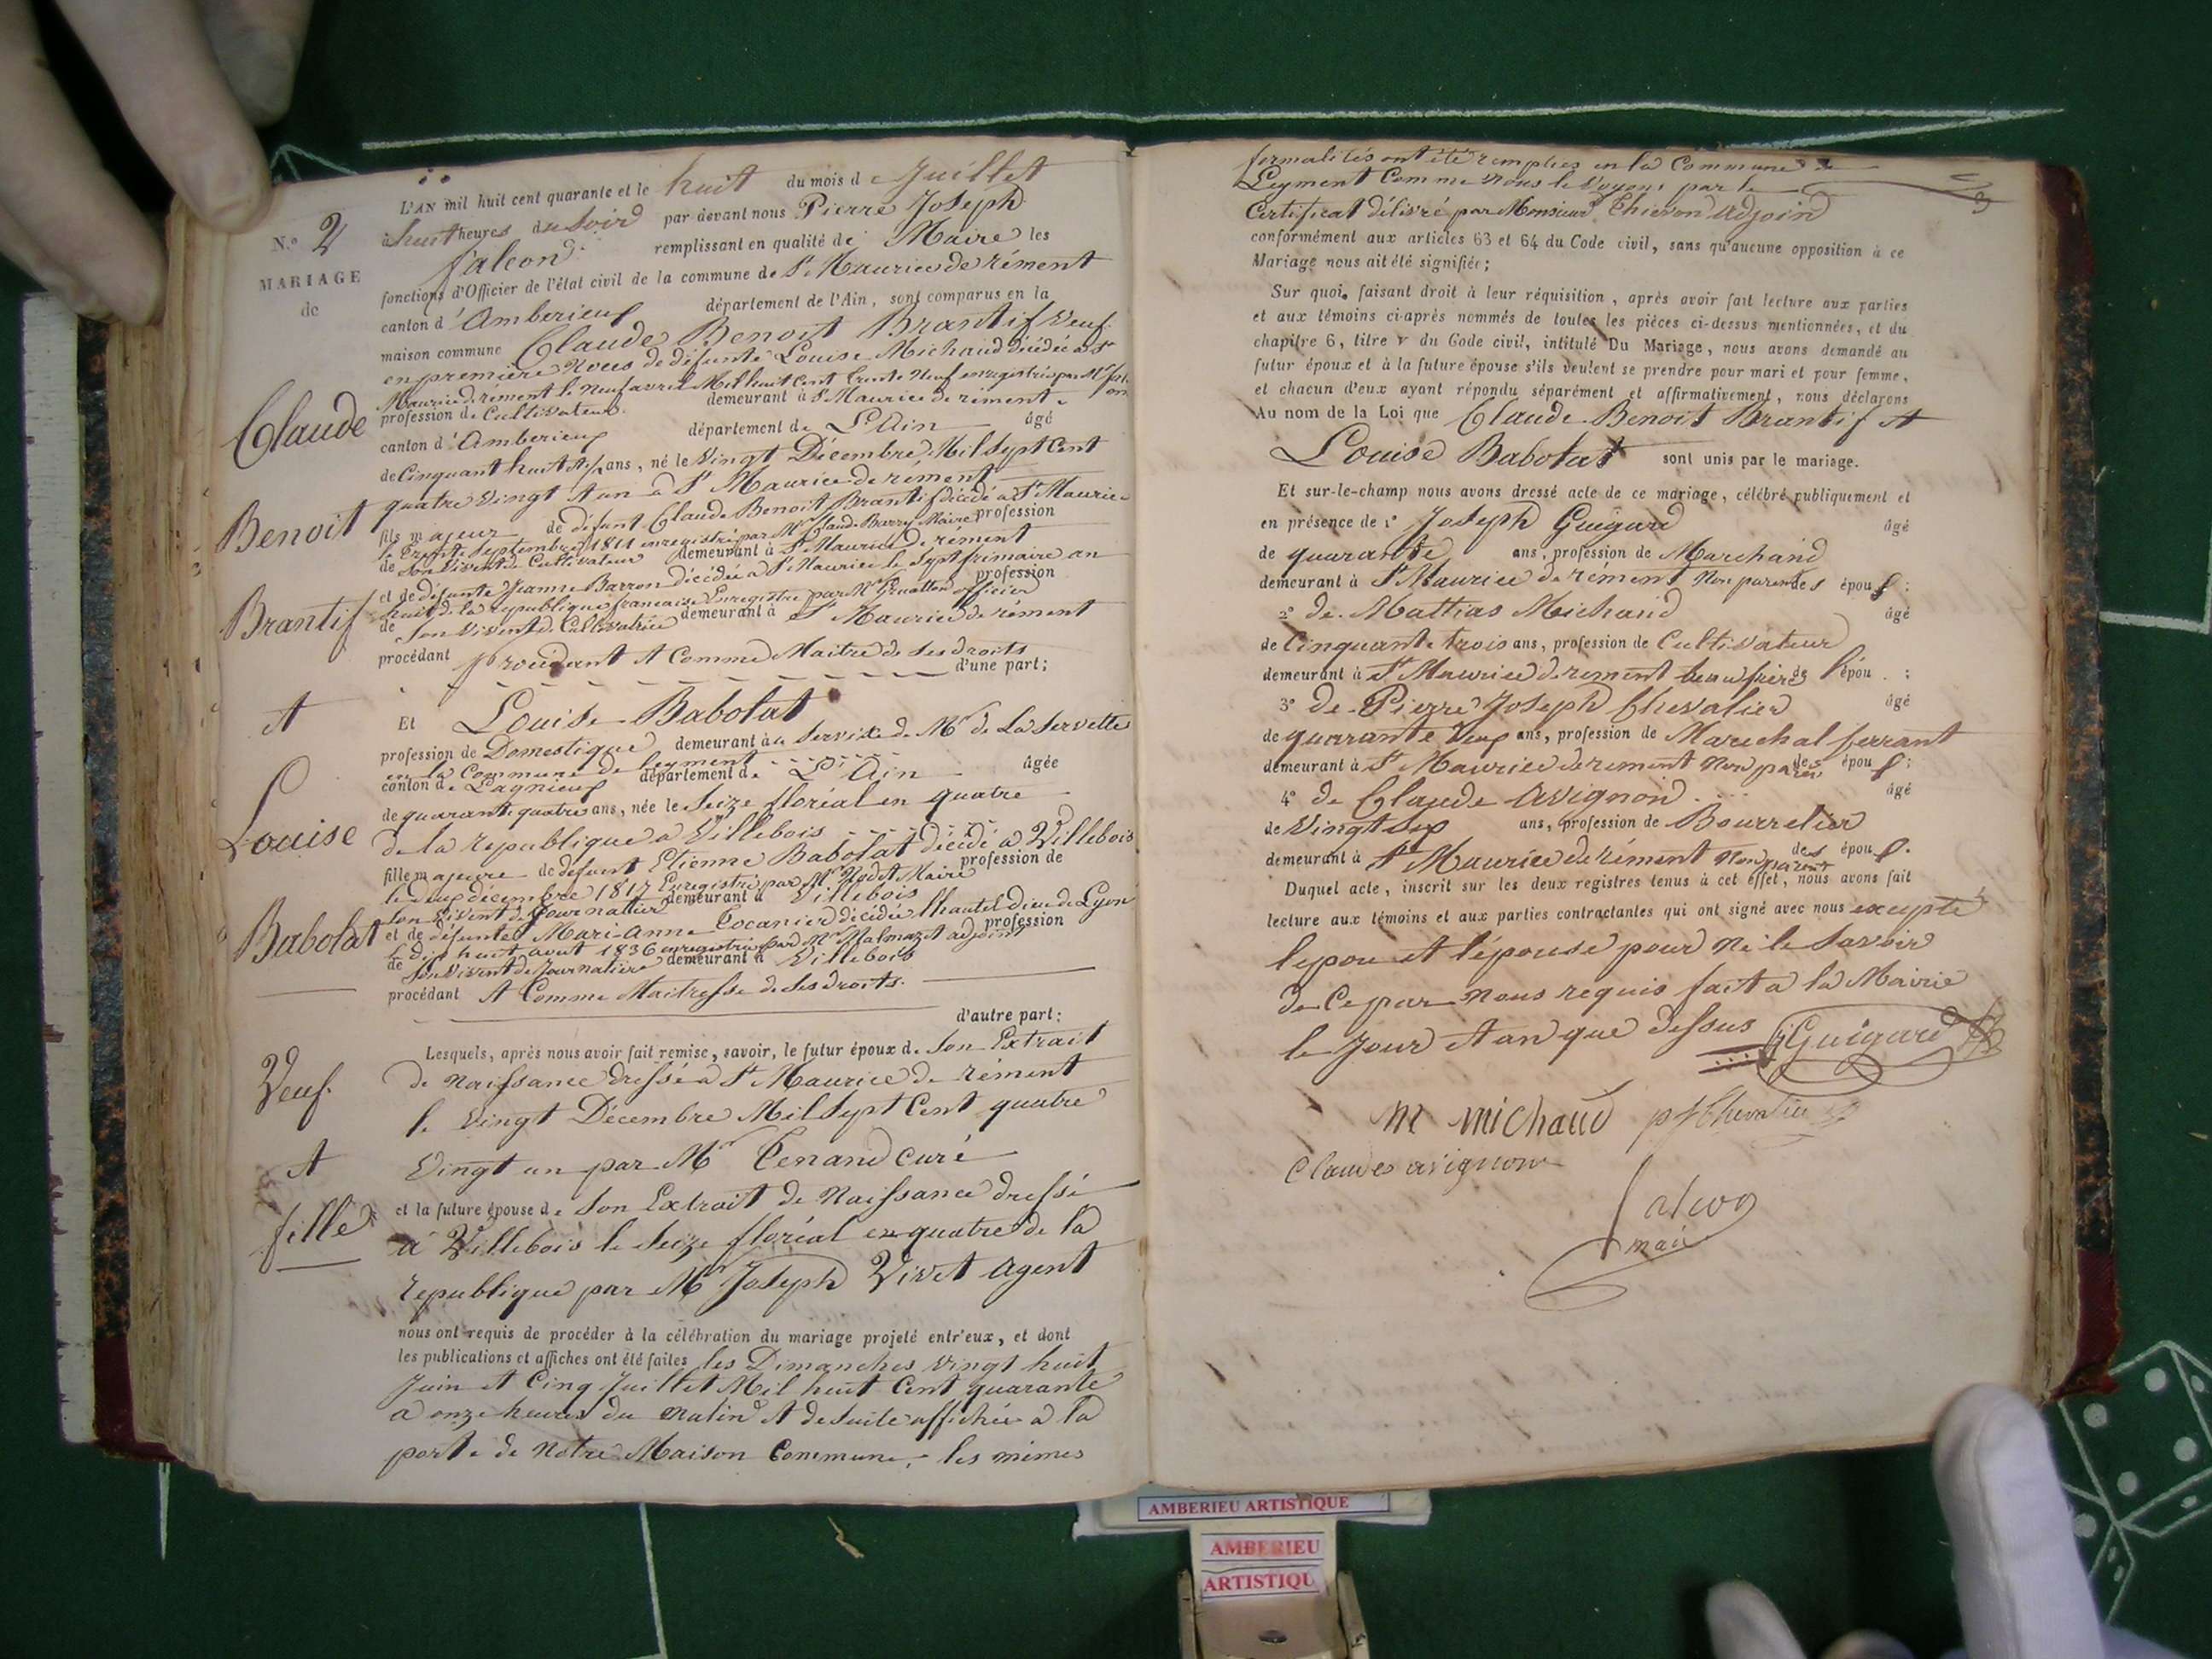 N.º 2
MARIAGE
de
Claude
Benoit
Brantif
et
Louise
Babolat
Veuf.
et
fille
L'AN mil huit cent quarante et le huit du mois de Juillet
à huit heures du Soir par devant nous Pierre Joseph
falcon remplissant en qualité de Maire les
fonctions d'Officier de l'état civil de la commune de St Maurice de rément
canton d'Amberieux département de l'Ain, sont comparus en la
maison commune Claude Benoit Brantif Veuf
en première Noces de défunte Louise Michaud décédée a St
Maurice de rément le Neuf avril Mil huit Cent trente Neuf enregistré par Mr falcon
profession de Cultivateur demeurant à St Maurice de rément
canton d'Amberieux département de L'Ain âgé
de Cinquant huit ans, né le Vingt Décembre Mil Sept Cent
quatre Vingt et un a St Maurice de rément
fils majeur de défunt Claude Benoit Brantif décédé a St Maurice
le Septembre 1811 enregistré par Mr Claude Barry Maire profession
de Son Vivent de Cultivateur demeurant à St Maurice de rément
et de défunte Jeanne Barron décédée a St Maurice le Sept frimaire an
huit de la république francaise Enregistré par Mr officier profession
de Son Vivent de Cultivatrice demeurant à St Maurice de rément
procédant procédant et Comme Maitre de Ses droits
d'une part;
Et Louise Babolat
profession de Domestique demeurant à u Service de Mr de La Servette
en la Commune de leyment
canton de Lagnieux département de L'Ain âgée
de quarante quatre ans, née le Seize floréal en quatre
de la republique a Villebois
fille majeure de defunt Etienne Babolat décédé a Villebois
le deux décembre 1817 Enregistré par Mr Maire profession de
Son Vivent de Journallier demeurant à Villebois
et de défunte Mari-anne décédée lhautel dieu de Lyon
le dix huit aout 1836 enregistré par Mr Malmazet adjoint profession
de Son Vivent de Journaliere demeurant à Villebois
procédant et Comme Maitresse de Ses droits.
d'autre part:
Lesquels, après nous avoir fait remise, savoir, le futur époux de Son Extrait
de Naissance dressé a St Maurice de rément
le Vingt Décembre Mil Sept Cent quatre
Vingt un par Mr Tenand curé
et la future épouse de Son Extrait de Naissance dressé
a Villebois le Seize floréal en quatre de la
republique par Mr Joseph Vivet agent
nous ont requis de procéder à la célébration du mariage projeté entr'eux, et dont
les publications et affiches ont été faites les Dimanches vingt huit
Juin et Cinq Juillet Mil huit Cent quarante
a onze heures du matin et de Suite affichée a la
porte de Notre Maison Commune, les mêmes
formalités ont été remplies en la Commune de
Leyment Comme Nous le Voyons par le
Certificat délivré par Monsieur Thievon adjoind
conformément aux articles 63 et 64 du Code civil, sans qu'aucune opposition à ce
Mariage nous ait été signifiée;
Sur quoi, faisant droit à leur réquisition, après avoir fait lecture aux parties
et aux témoins ci-après nommés de toutes les pièces ci-dessus mentionnées, et du
chapitre 6, titre V du Code civil, intitulé Du Mariage, nous avons demandé au
futur époux et à la future épouse s'ils veulent se prendre pour mari et pour femme,
et chacun d'eux ayant répondu séparément et affirmativement, nous déclarons
Au nom de la Loi que Claude Benoit Brantif et
Louise Babolat sont unis par le mariage.
Et sur-le-champ nous avons dressé acte de ce mariage, célébré publiquement et
en présence de 1º Joseph Guigard âgé
de quarante ans, profession de Marchand
demeurant à St Maurice de rément Non parent des époux:
2º de Mattias Michaud âgé
de Cinquante trois ans, profession de Cultivateur
demeurant à St Maurice de rement beau frère de l'épou :
3º de Pierre Joseph Chevalier âgé
de quarante deux ans, profession de Marechal ferrant
demeurant à St Maurice de rement Non parent des époux:
4º de Claude Avignon âgé
de Vingt six ans, profession de Bourrelier
demeurant à St Maurice de rément Non parent des époux.
Duquel acte, inscrit sur les deux registres tenus à cet effet, nous avons fait
lecture aux témoins et aux parties contractantes qui ont signé avec nous excepté
lepou et lépouse pour Ne le Savoir
de Ce par Nous requis fait a la Mairie
le Jour et an que dessus Guigard
m michaud pj Chevalier
Claudes avignon
falcon
maire
AMBERIEU ARTISTIQUE
AMBERIEU
ARTISTIQU